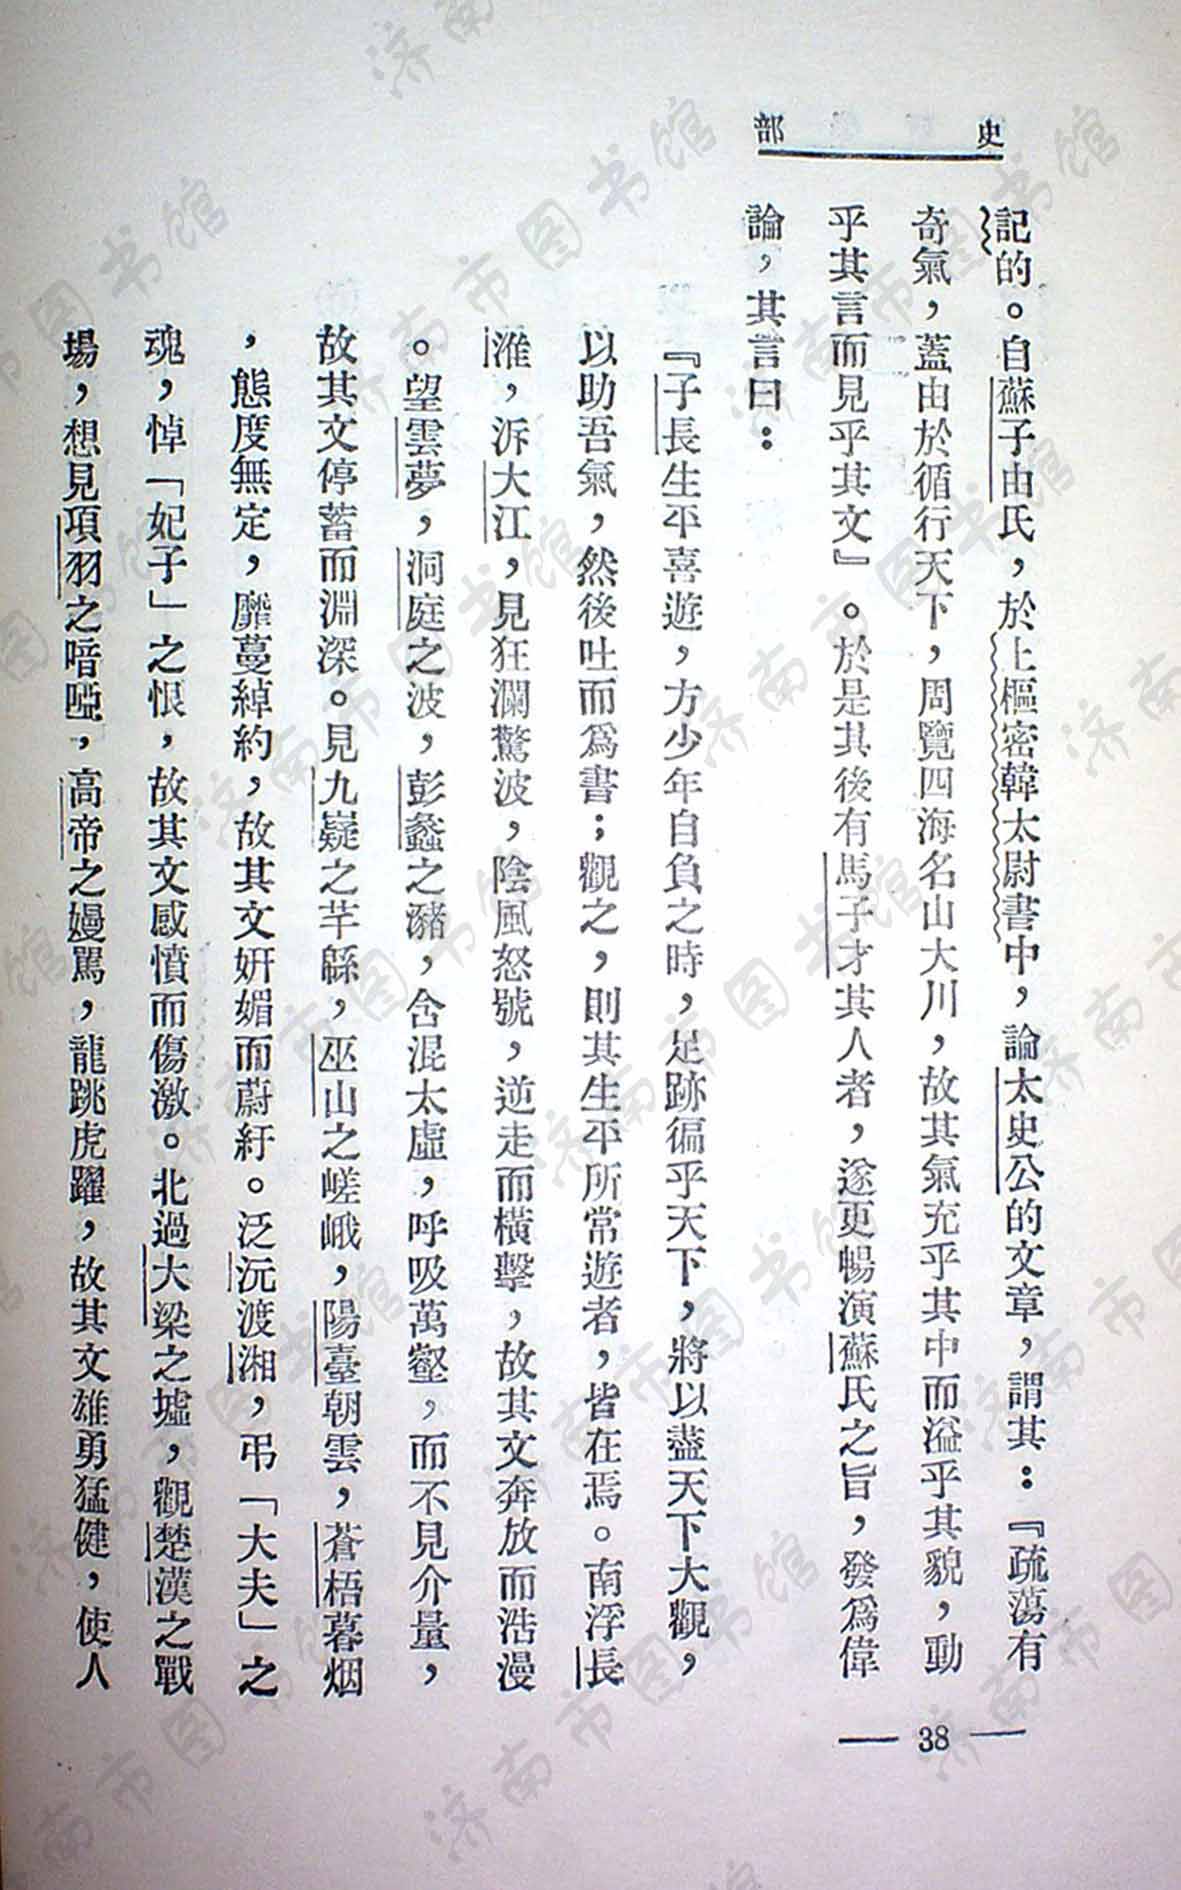 史部
記的。自蘇子由氏，於上樞密韓太尉書中，論太史公的文章，謂其：『疏蕩有
奇氣，蓋由於循行天下，周覽四海名山大川，故其氣充乎其中而溢乎其貌，動
乎其言而見乎其文』。於是其後有馬子才其人者，遂更暢演蘇氏之旨，發爲偉
論，其言曰：
『子長生平喜遊，方少年自負之時，足跡徧乎天下，將以盡天下大觀，
以助吾氣，然後吐而爲書；觀之，則其生平所常遊者，皆在焉。南浮長
淮，泝大江，見狂瀾驚波，陰風怒號，逆走而橫擊，故其文奔放而浩漫
。望雲夢，洞庭之波，彭蠡之瀦，含混太虛，呼吸萬壑，而不見介量，
故其文停蓄而淵深。見九嶷之芊緜，巫山之嵯峨，陽臺朝雲，蒼梧暮烟
，態度無定，靡蔓綽約，故其文妍媚而蔚紆。泛沅渡湘，弔「大夫」之
魂，悼「妃子」之恨，故其文感憤而傷激。北過大梁之墟，觀楚漢之戰
場，想見項羽之喑啞，高帝之嫚罵，龍跳虎躍，故其文雄勇猛健，使人
— 38 —
济南市图书馆